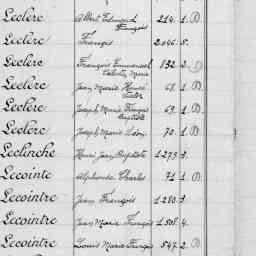 Leclère Albert Edmond François 214. 1. D
Leclère François 2046. 5.
Leclère François Emmanuel Célestin Marie 132. 2. D
Leclère Jean Marie Honoré 68. 1. D
Leclère Joseph Marie François Baptiste 69. 1. D
Leclère Joseph Marie Léon 70. 1. D
Leclinche Henri Jean Baptiste 1273. 3.
Lecointe Alphonse Charles 71. 1. D
Lecointre Jean François 1280. 3.
Lecointre Jean Marie François 1508. 4.
Lecointre Louis Marie François 547. 2. D